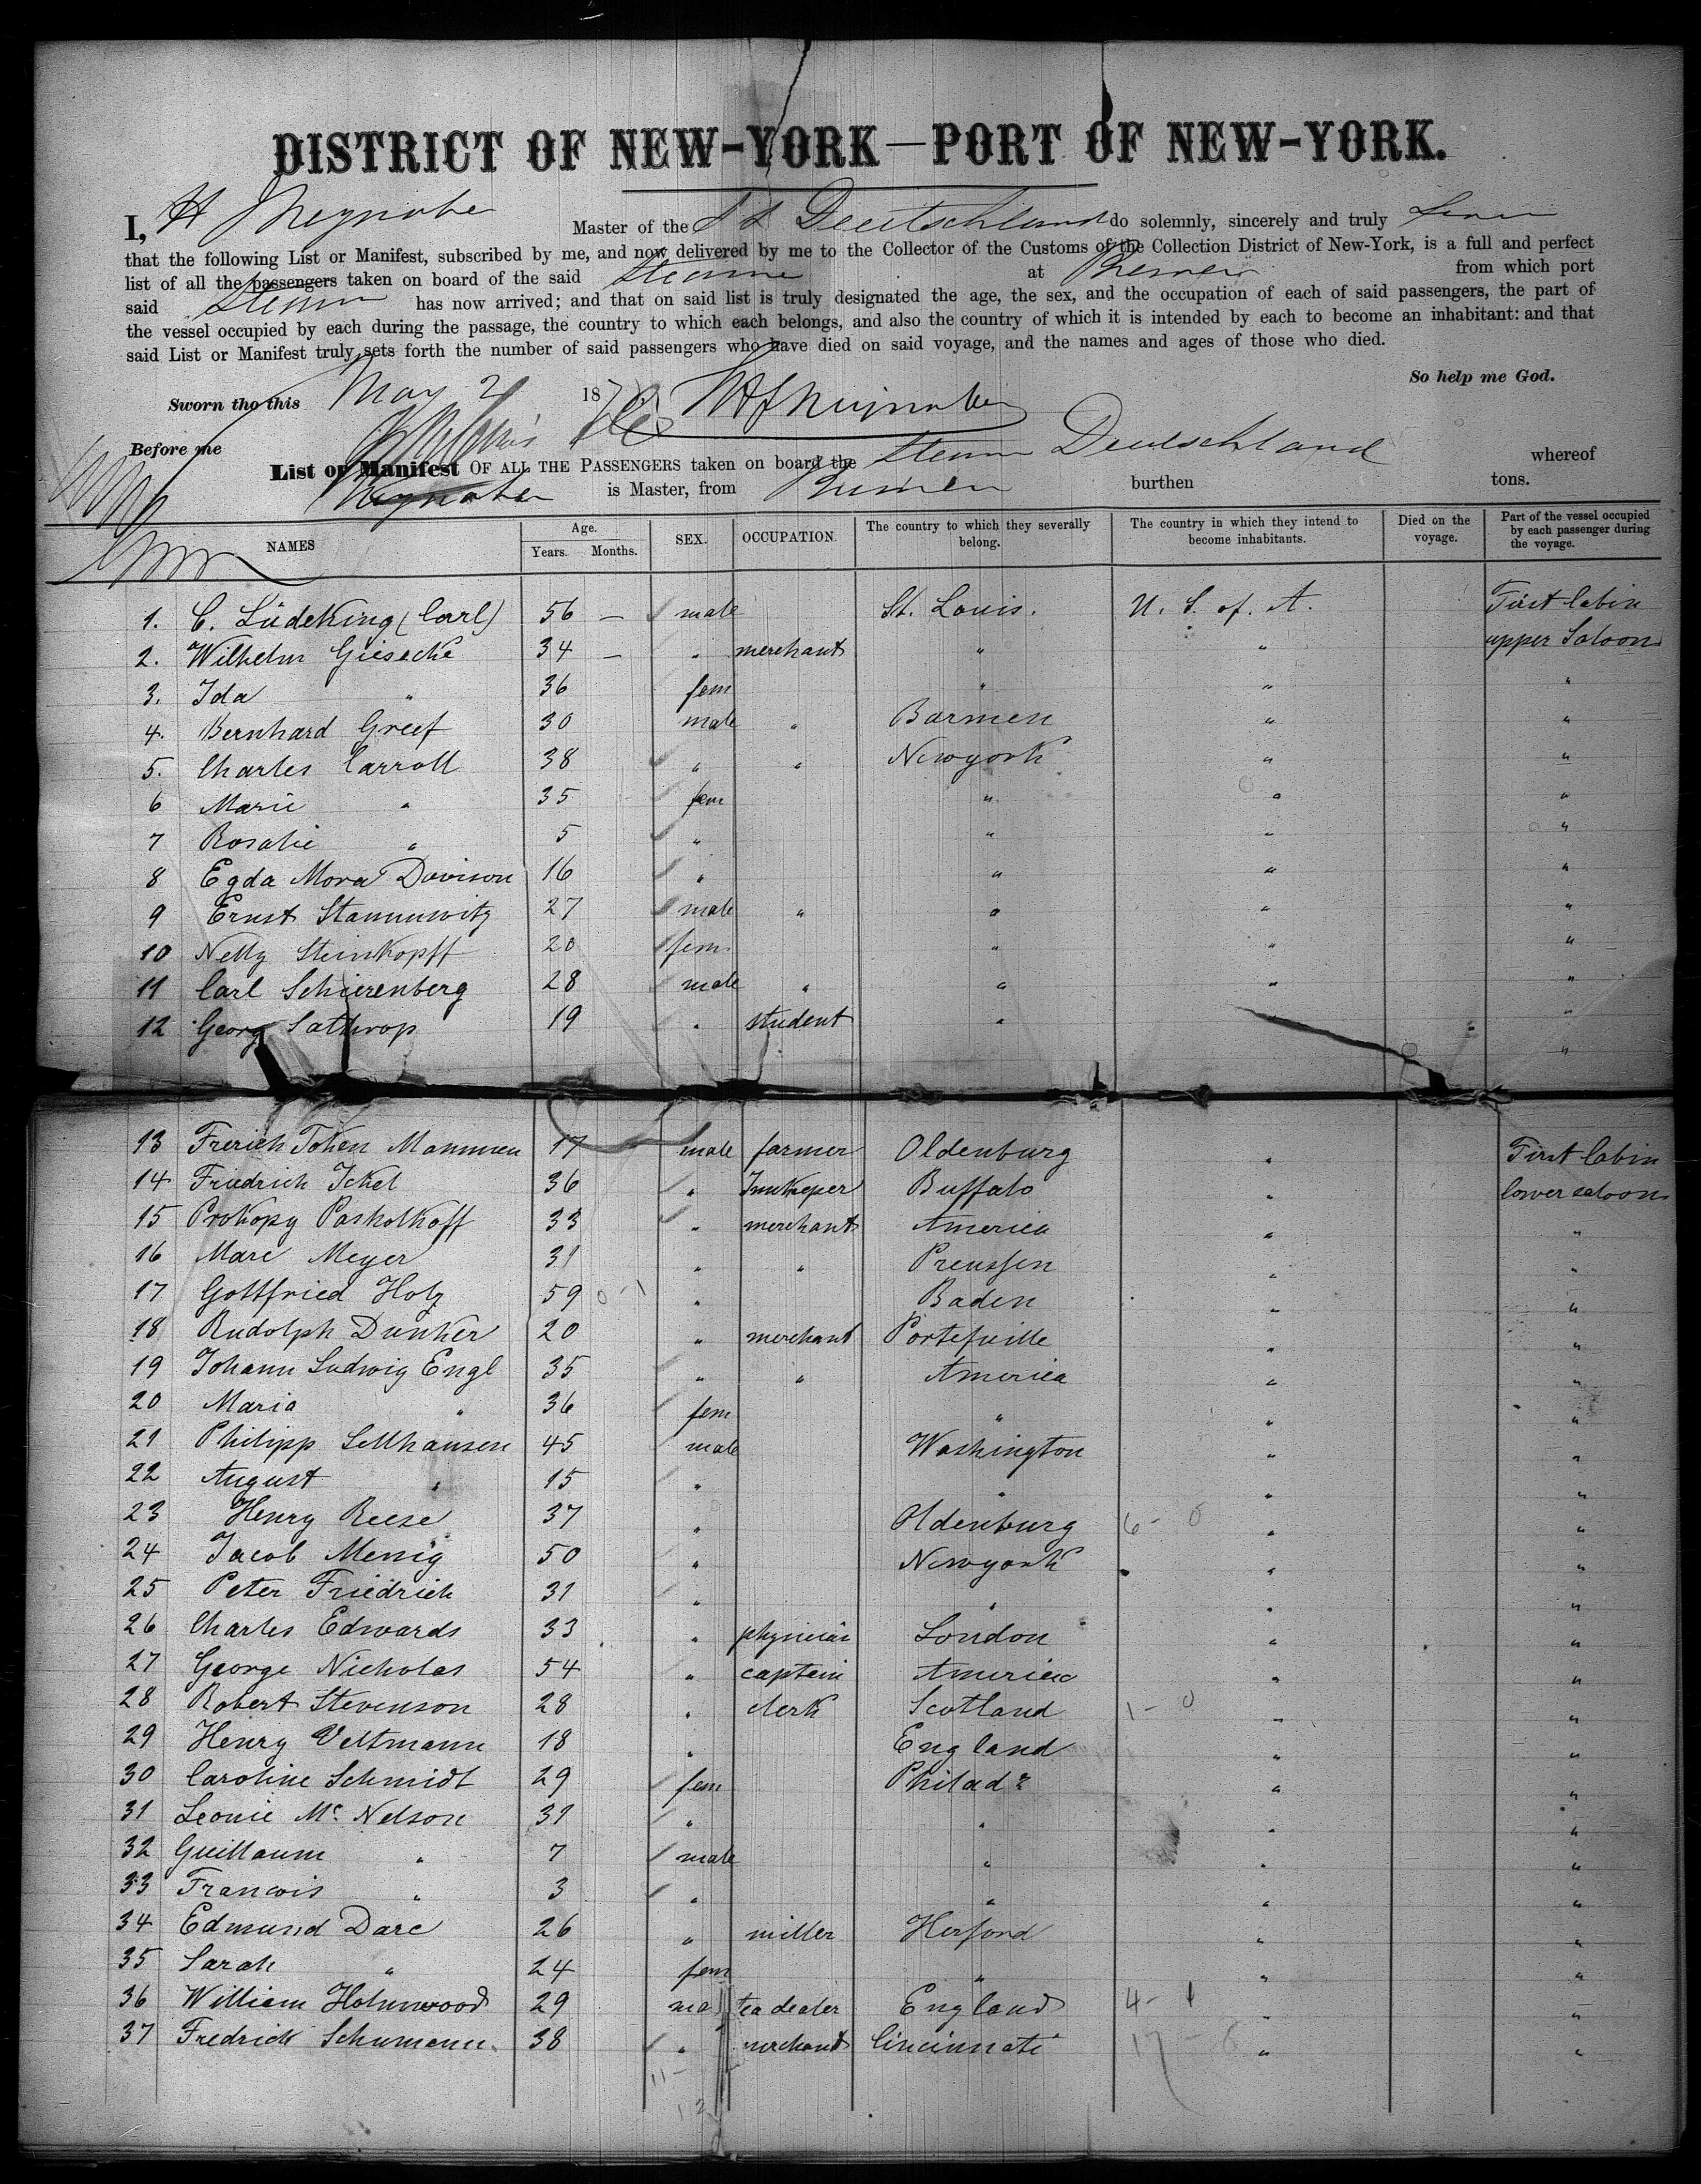 DISTRICT OF NEW-YORK—PORT OF NEW-YORK.
I, H Master of the S S Deutschland do solemnly, sincerely and truly
that the following List or Manifest, subscribed by me, and now delivered by me to the Collector of the Customs of the Collection District of New-York, is a full and perfect
list of all the passengers taken on board of the said at Bremen from which port
said has now arrived; and that on said list is truly designated the age, the sex, and the occupation of each of said passengers, the part of
the vessel occupied by each during the passage, the country to which each belongs, and also the country of which it is intended by each to become an inhabitant: and that
said List or Manifest truly sets forth the number of said passengers who have died on said voyage, and the names and ages of those who died.
So help me God.
Sworn tho this May 2 187
Before me
List or Manifest OF ALL THE PASSENGERS taken on board the Deutschland whereof
is Master, from Bremen burthen tons.
NAMES Age. Years. Months. SEX. OCCUPATION. The country to which they severally belong. The country in which they intend to become inhabitants. Died on the voyage. Part of the vessel occupied by each passenger during the voyage.
1. C. Lüdeking (Carl) 56 — male St. Louis. U. S. of. A. First Cabin
2. Wilhelm Giesecke 34 — " merchant " " upper Saloon
3. Ida " 36 fem " " "
4. Bernhard Greef 30 male " Barmen " "
5. Charles Carroll 38 " " Newyork " "
6 Marie " 35 fem " " "
7 Rosalie " 5 " " " "
8 Egda Mora Davison 16 " " " "
9 Ernst Stammwitz 27 male " " " "
10 Nelly Steinkopff 20 fem. " " "
11 Carl Schierenberg 28 male " " " "
12 Georg Lathrop 19 " student " "
13 Frerich Token Mammen 17 male farmer Oldenburg " First Cabin
14 Friedrich Ickel 36 " Innkeper Buffalo " lower saloon
15 Prokopy Pasholkoff 33 " merchant America " "
16 Marc Meyer 31 " " Preussen " "
17 Gottfried Holz 59 " Baden " "
18 Rudolph Dunker 20 " merchant " "
19 Johann Ludwig Engl 35 " " America " "
20 Maria " 36 fem " " "
21 Philipp Sellhausen 45 male Washington " "
22 August " 15 " " " "
23 Henry Reese 37 " Oldenburg 6 - 0 " "
24 Jacob Mennig 50 " Newyork " "
25 Peter Friedrich 31 " " " "
26 Charles Edwards 33 " physician London " "
27 George Nicholas 54 " captain America " "
28 Robert Stevenson 28 " clerk Scotland 1 - 0 " "
29 Henry Veltmann 18 " England " "
30 Caroline Schmidt 29 fem Philada " "
31 Leonie Mc Nelson 31 " " " "
32 Guillaum " 7 male " " "
33 Francois " 3 " " " "
34 Edmund Dare 26 " miller Herford " "
35 Sarah " 24 fem " " "
36 William Holmwood 29 ma tea dealer England 4 - 1 " "
37 Fredrick Schumann. 38 " merchant Cincinnati 17 - 6 " "